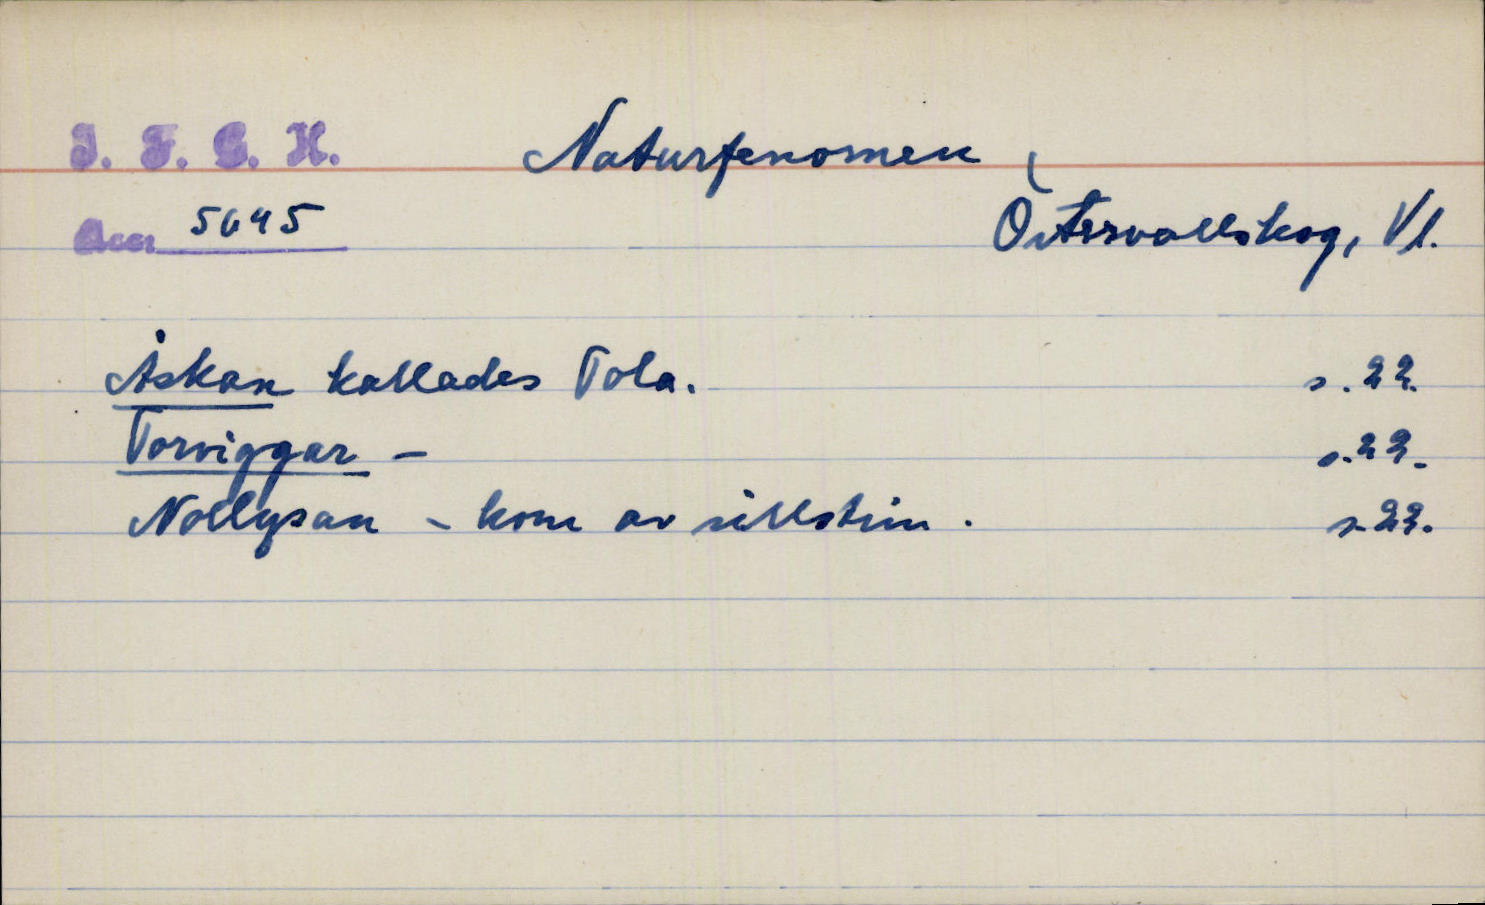 I. F. G. H. Naturfenomen
Accr 5645 Östervallskog, Vl.
Åskan kallades Tola. s. 22.
Torviggar – s. 22.
Nollysan – kom av sillstim. s. 22.